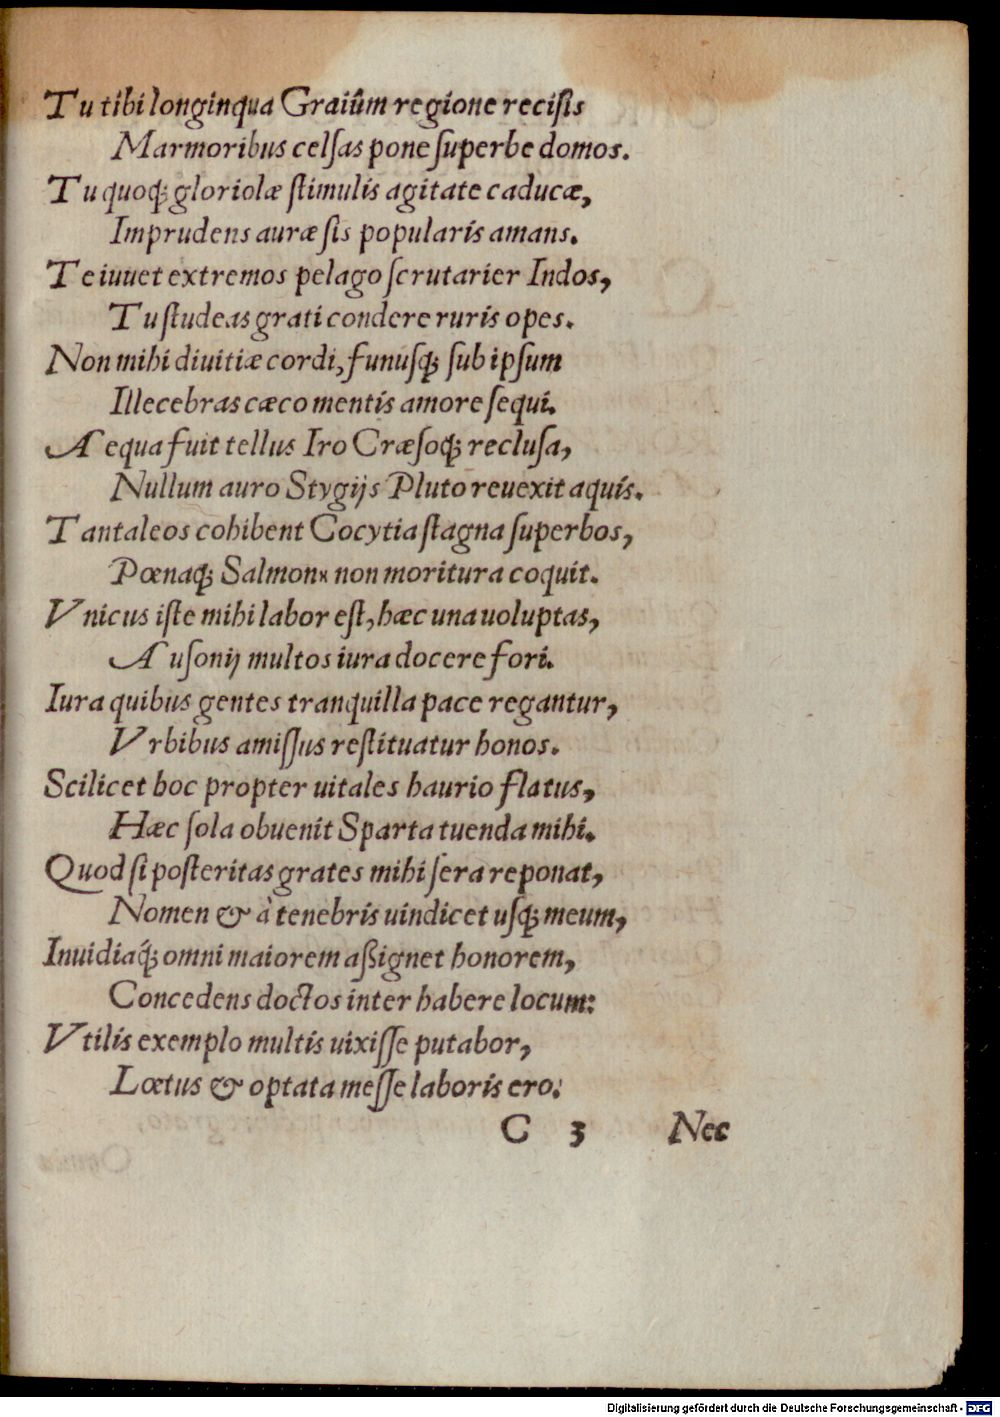 Tu tibi longinqua Graiûm regione recisis
Marmoribus celsas pone superbe domos.
Tu quoq; gloriolæ stimulis agitate caducæ,
Imprudens auræ sis popularis amans.
Te iuuet extremos pelago scrutarier Indos,
Tu studeas grati condere ruris opes.
Non mihi diuitiæ cordi, funusq; sub ipsum
Illecebras cæco mentis amore sequi.
Aequa fuit tellus Iro Cræsoq; reclusa,
Nullum auro Stygijs Pluto reuexit aquis.
Tantaleos cohibent Cocytia stagna superbos,
Pœnaq; Salmonꝝ non moritura coquit.
Vnicus iste mihi labor est, hæc una uoluptas,
Ausonij multos iura docere fori.
Iura quibus gentes tranquilla pace regantur,
Vrbibus amissus restituatur honos.
Scilicet hoc propter uitales haurio flatus,
Hæc sola obuenit Sparta tuenda mihi.
Quod si posteritas grates mihi sera reponat,
Nomen & à tenebris uindicet usq; meum,
Inuidiaq́; omni maiorem aßignet honorem,
Concedens doctos inter habere locum:
Vtilis exemplo multis uixisse putabor,
Lœtus & optata messe laboris ero.
C 3 Nec
Digitalisierung gefördert durch die Deutsche Forschungsgemeinschaft - DFG